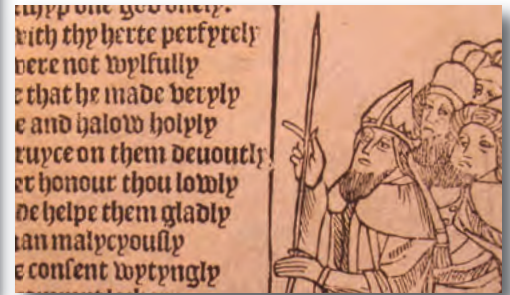 one god onely.
with thy herte perfytely
not wylfully
that he made veryly
and halow holply
on them deuoutly
honour thou lowly
helpe them gladly
malycyously
consent wytyngly